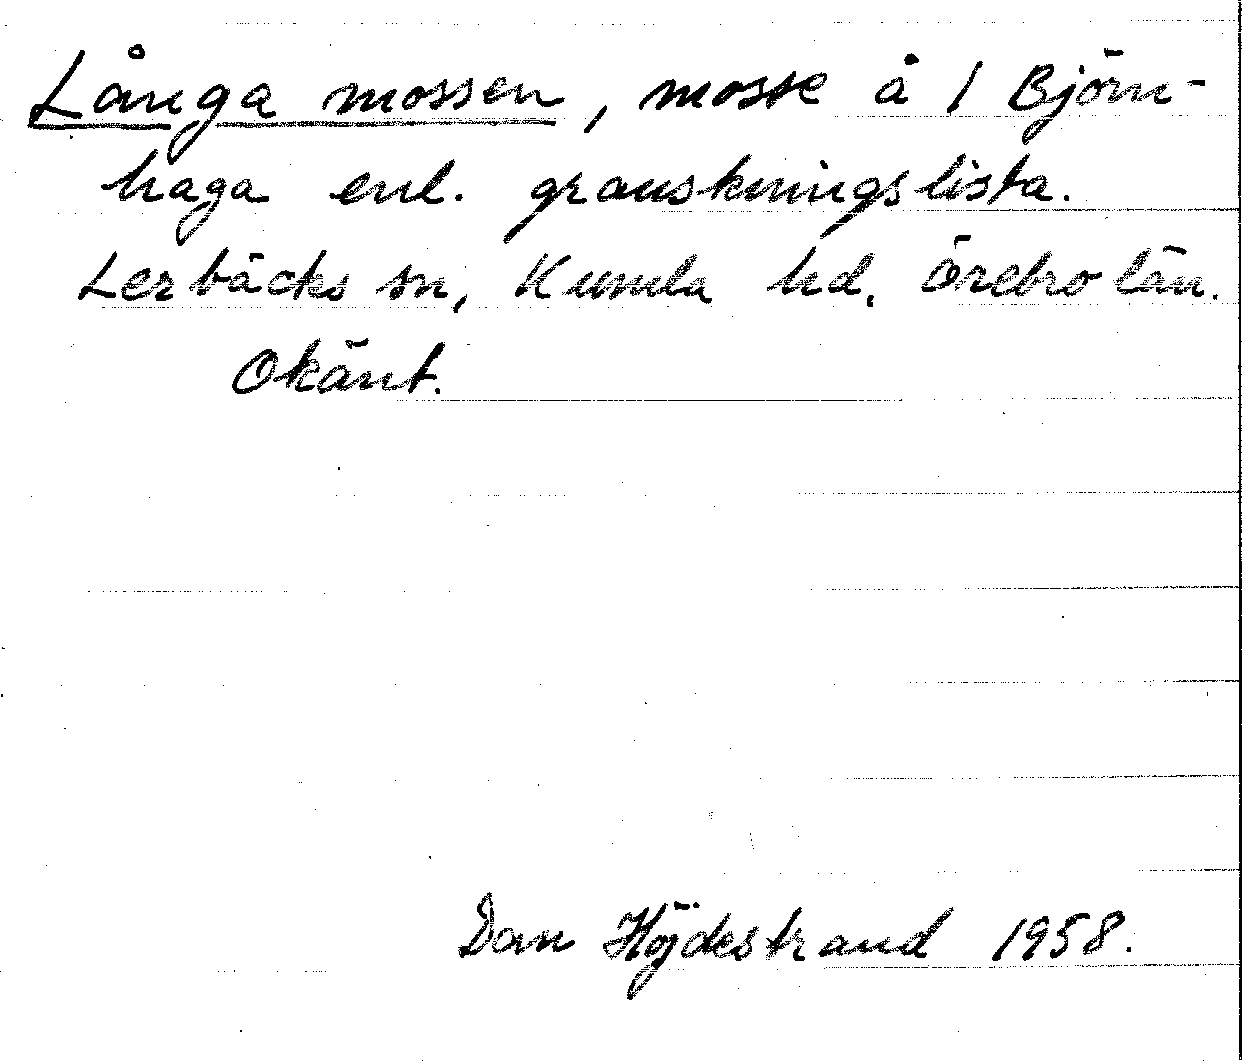 Långa mossen, mosse å 1 Björn-
haga enl. granskningslista.
Lerbäcks sn, Kumla hd, Örebro län.
Okänt.
Dan Höjdestrand 1958.